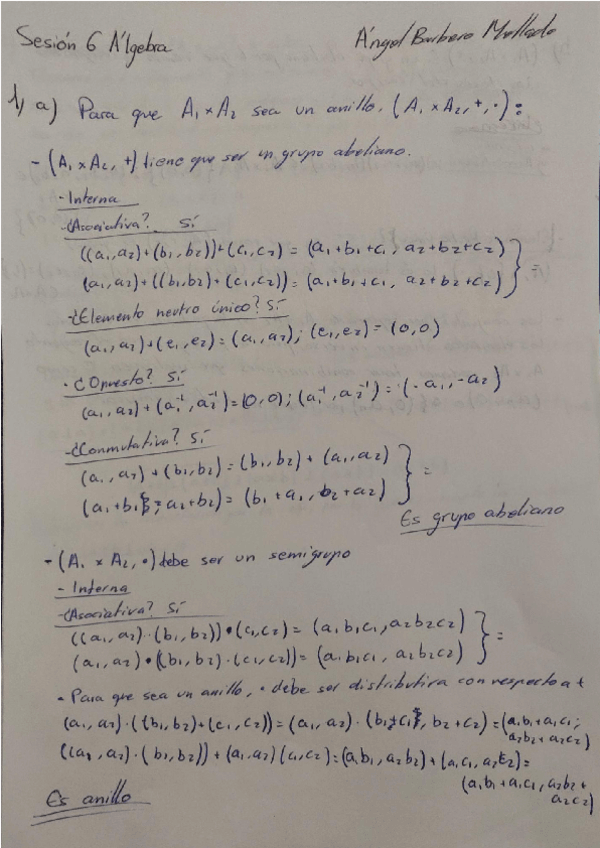 Sesión 6 Álgebra
Ángel Barbero Mellado
1) a) Para que A₁ × A₂ sea un anillo. (A₁ × A₂, +, ·) :
- (A₁ × A₂, +) tiene que ser un grupo abeliano.
- Interna
- ¿Asociativa? Sí
((a₁, a₂) + (b₁, b₂)) + (c₁, c₂) = (a₁ + b₁ + c₁, a₂ + b₂ + c₂) } =
(a₁, a₂) + ((b₁, b₂) + (c₁, c₂)) = (a₁ + b₁ + c₁, a₂ + b₂ + c₂)
- ¿Elemento neutro único? Sí
(a₁, a₂) + (e₁, e₂) = (a₁, a₂); (e₁, e₂) = (0, 0)
- ¿Opuesto? Sí
(a₁, a₂) + (a₁⁻¹, a₂⁻¹) = (0, 0); (a₁⁻¹, a₂⁻¹) = (-a₁, -a₂)
- ¿Conmutativa? Sí
(a₁, a₂) + (b₁, b₂) = (b₁, b₂) + (a₁, a₂) } =
(a₁ + b₁, a₁ + b₂) = (b₁ + a₁, b₂ + a₂)
Es grupo abeliano
- (A₁ × A₂, ·) debe ser un semigrupo
- Interna
- ¿Asociativa? Sí
((a₁, a₂) · (b₁, b₂)) · (c₁, c₂) = (a₁ b₁ c₁, a₂ b₂ c₂) } =
(a₁, a₂) · ((b₁, b₂) · (c₁, c₂)) = (a₁ b₁ c₁, a₂ b₂ c₂)
- Para que sea un anillo, · debe ser distributiva con respecto a +
(a₁, a₂) · ((b₁, b₂) + (c₁, c₂)) = (a₁, a₂) · (b₁ + c₁, b₂ + c₂) = (a₁ b₁ + a₁ c₁;
a₂ b₂ + a₂ c₂)
((a₁, a₂) · (b₁, b₂)) + (a₁, a₂) (c₁, c₂) = (a₁ b₁, a₂ b₂) + (a₁ c₁, a₂ c₂) =
(a₁ b₁ + a₁ c₁, a₂ b₂ +
a₂ c₂)
Es anillo